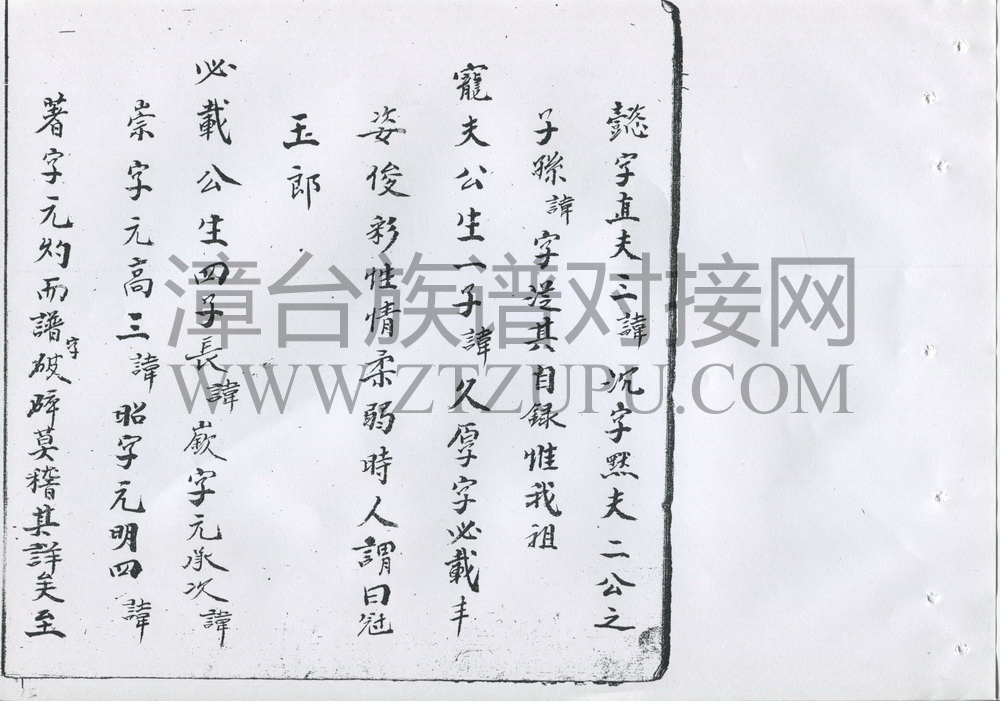 懿字直夫三諱沉字黙夫二公之
子孫諱字還其自録惟我祖
寵夫公生一子諱久厚字必載丰
姿俊彩性情柔弱時人謂曰冠
玉郎
必載公生四子長諱嶔字元承次諱
崇字元高三諱昭字元明四諱
著字元灼而譜字破碎莫稽其詳矣至
漳台族谱对接网
WWW.ZTZUPU.COM